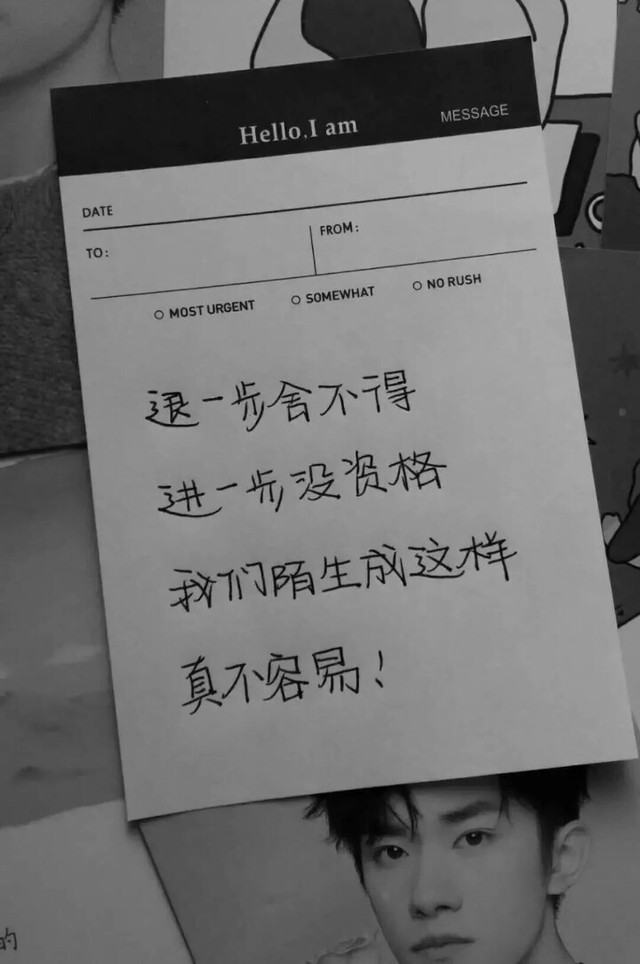 Hello, I am MESSAGE
DATE
TO: FROM:
MOST URGENT SOMEWHAT NO RUSH
退一步舍不得
进一步没资格
我们陌生成这样
真不容易！
的